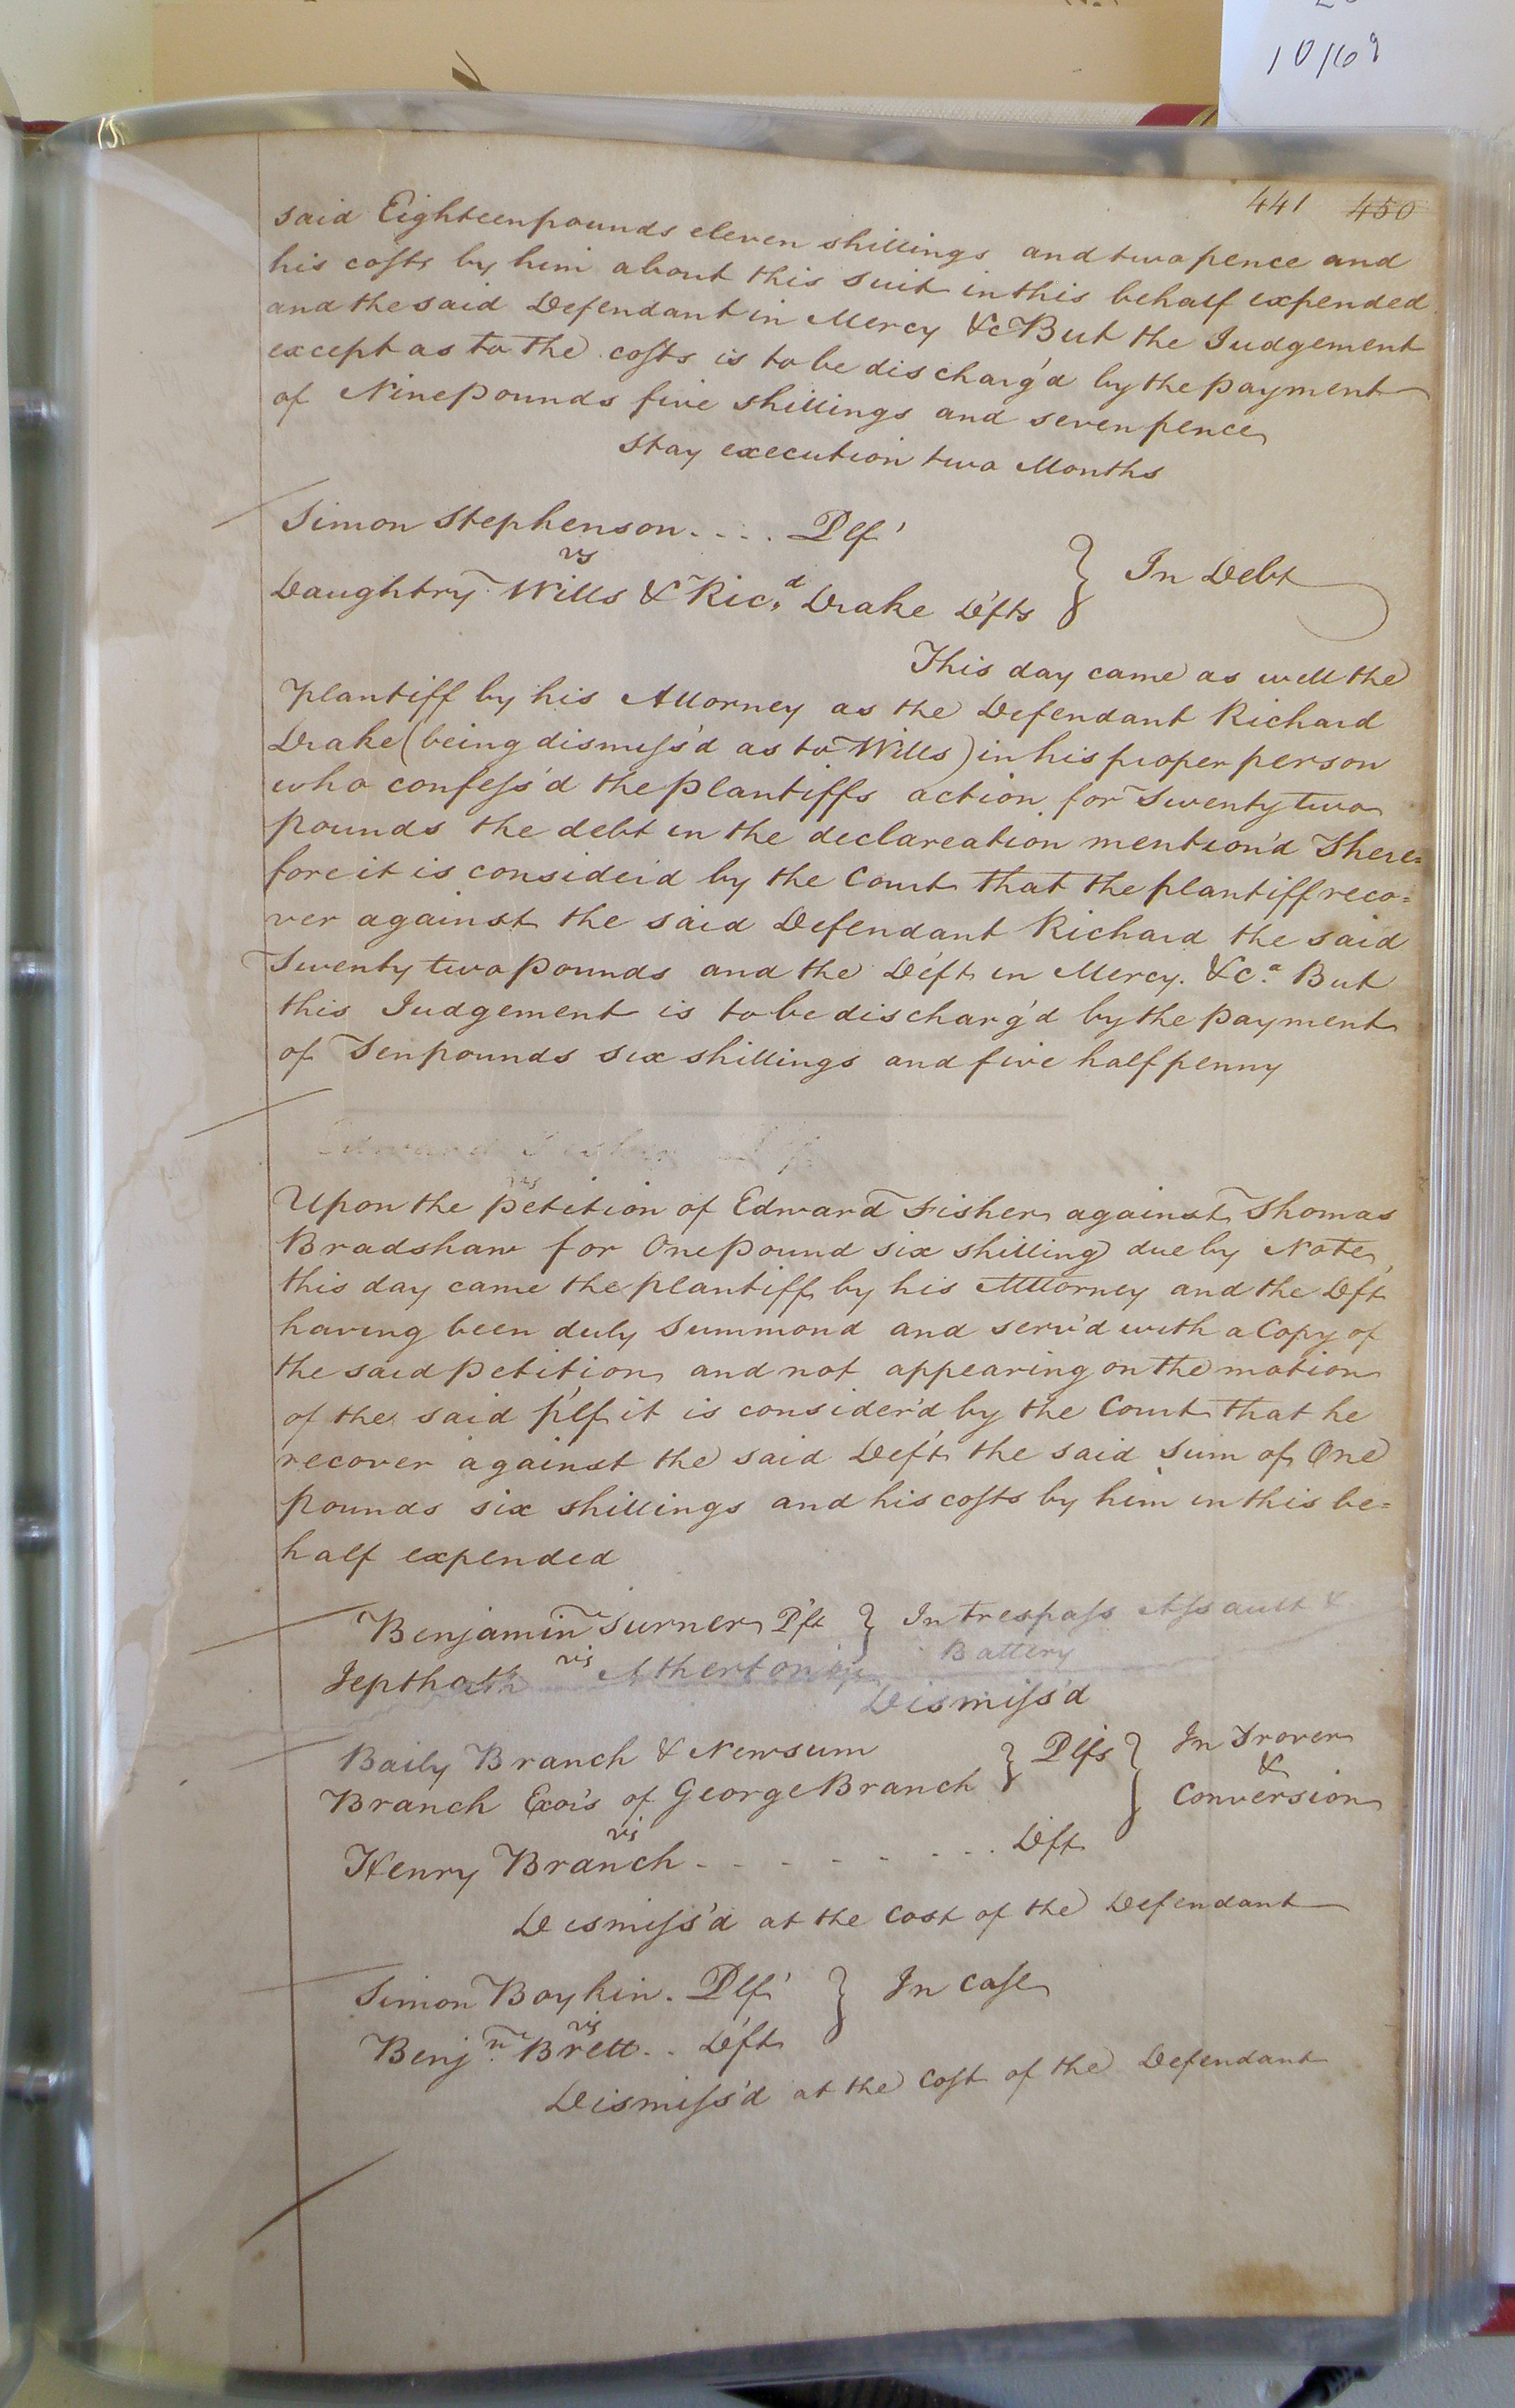 10/69
441 450
said Eighteen pounds eleven shillings and two pence and
his costs by him about this suit in this behalf expended
and the said Defendant in Mercy &c But the Judgement
except as to the costs is to be discharg'd by the payment
of Nine pounds five shillings and seven pence
Stay execution two Months
Simon Stephenson.... Plf
vs
Daughtry Wills & Ric.d Drake Defts } In Debt
This day came as well the
plantiff by his Attorney as the Defendant Richard
Drake (being dismiss'd as to Wills) in his proper person
who confess'd the plantiffs action for Twenty two
pounds the debt in the declareation mention'd There=
fore it is consider'd by the Court that the plantiff reco=
ver against the said Defendant Richard the said
Twenty two pounds and the Deft in Mercy. &c.a But
this Judgement is to be discharg'd by the payment
of Ten pounds six shillings and five half penny
Edward Fisher Plf
vs
Upon the petition of Edward Fisher against Thomas
Bradshaw for One pound six shilling due by Note,
this day came the plantiff by his Attorney and the Dft
having been duly Summond and serv'd with a Copy of
the said petition and not appearing on the motion
of the said plf it is consider'd by the Court that he
recover against the said Deft the said Sum of One
pounds six shillings and his costs by him in this be=
half expended
Benjamin Turner Plt } In trespass Assault &
vs Battery
Jepthath Atherton
Dismiss'd
Baily Branch & Newsum } Plfs } In Trover
Branch Exo'rs of George Branch & Conversion
vs
Henry Branch - - - - - - - - Dft
Dismiss'd at the Cost of the Defendant
Simon Boykin. Plf } In Case
vs
Benj.n Brett.. Deft
Dismiss'd at the Cost of the Defendant